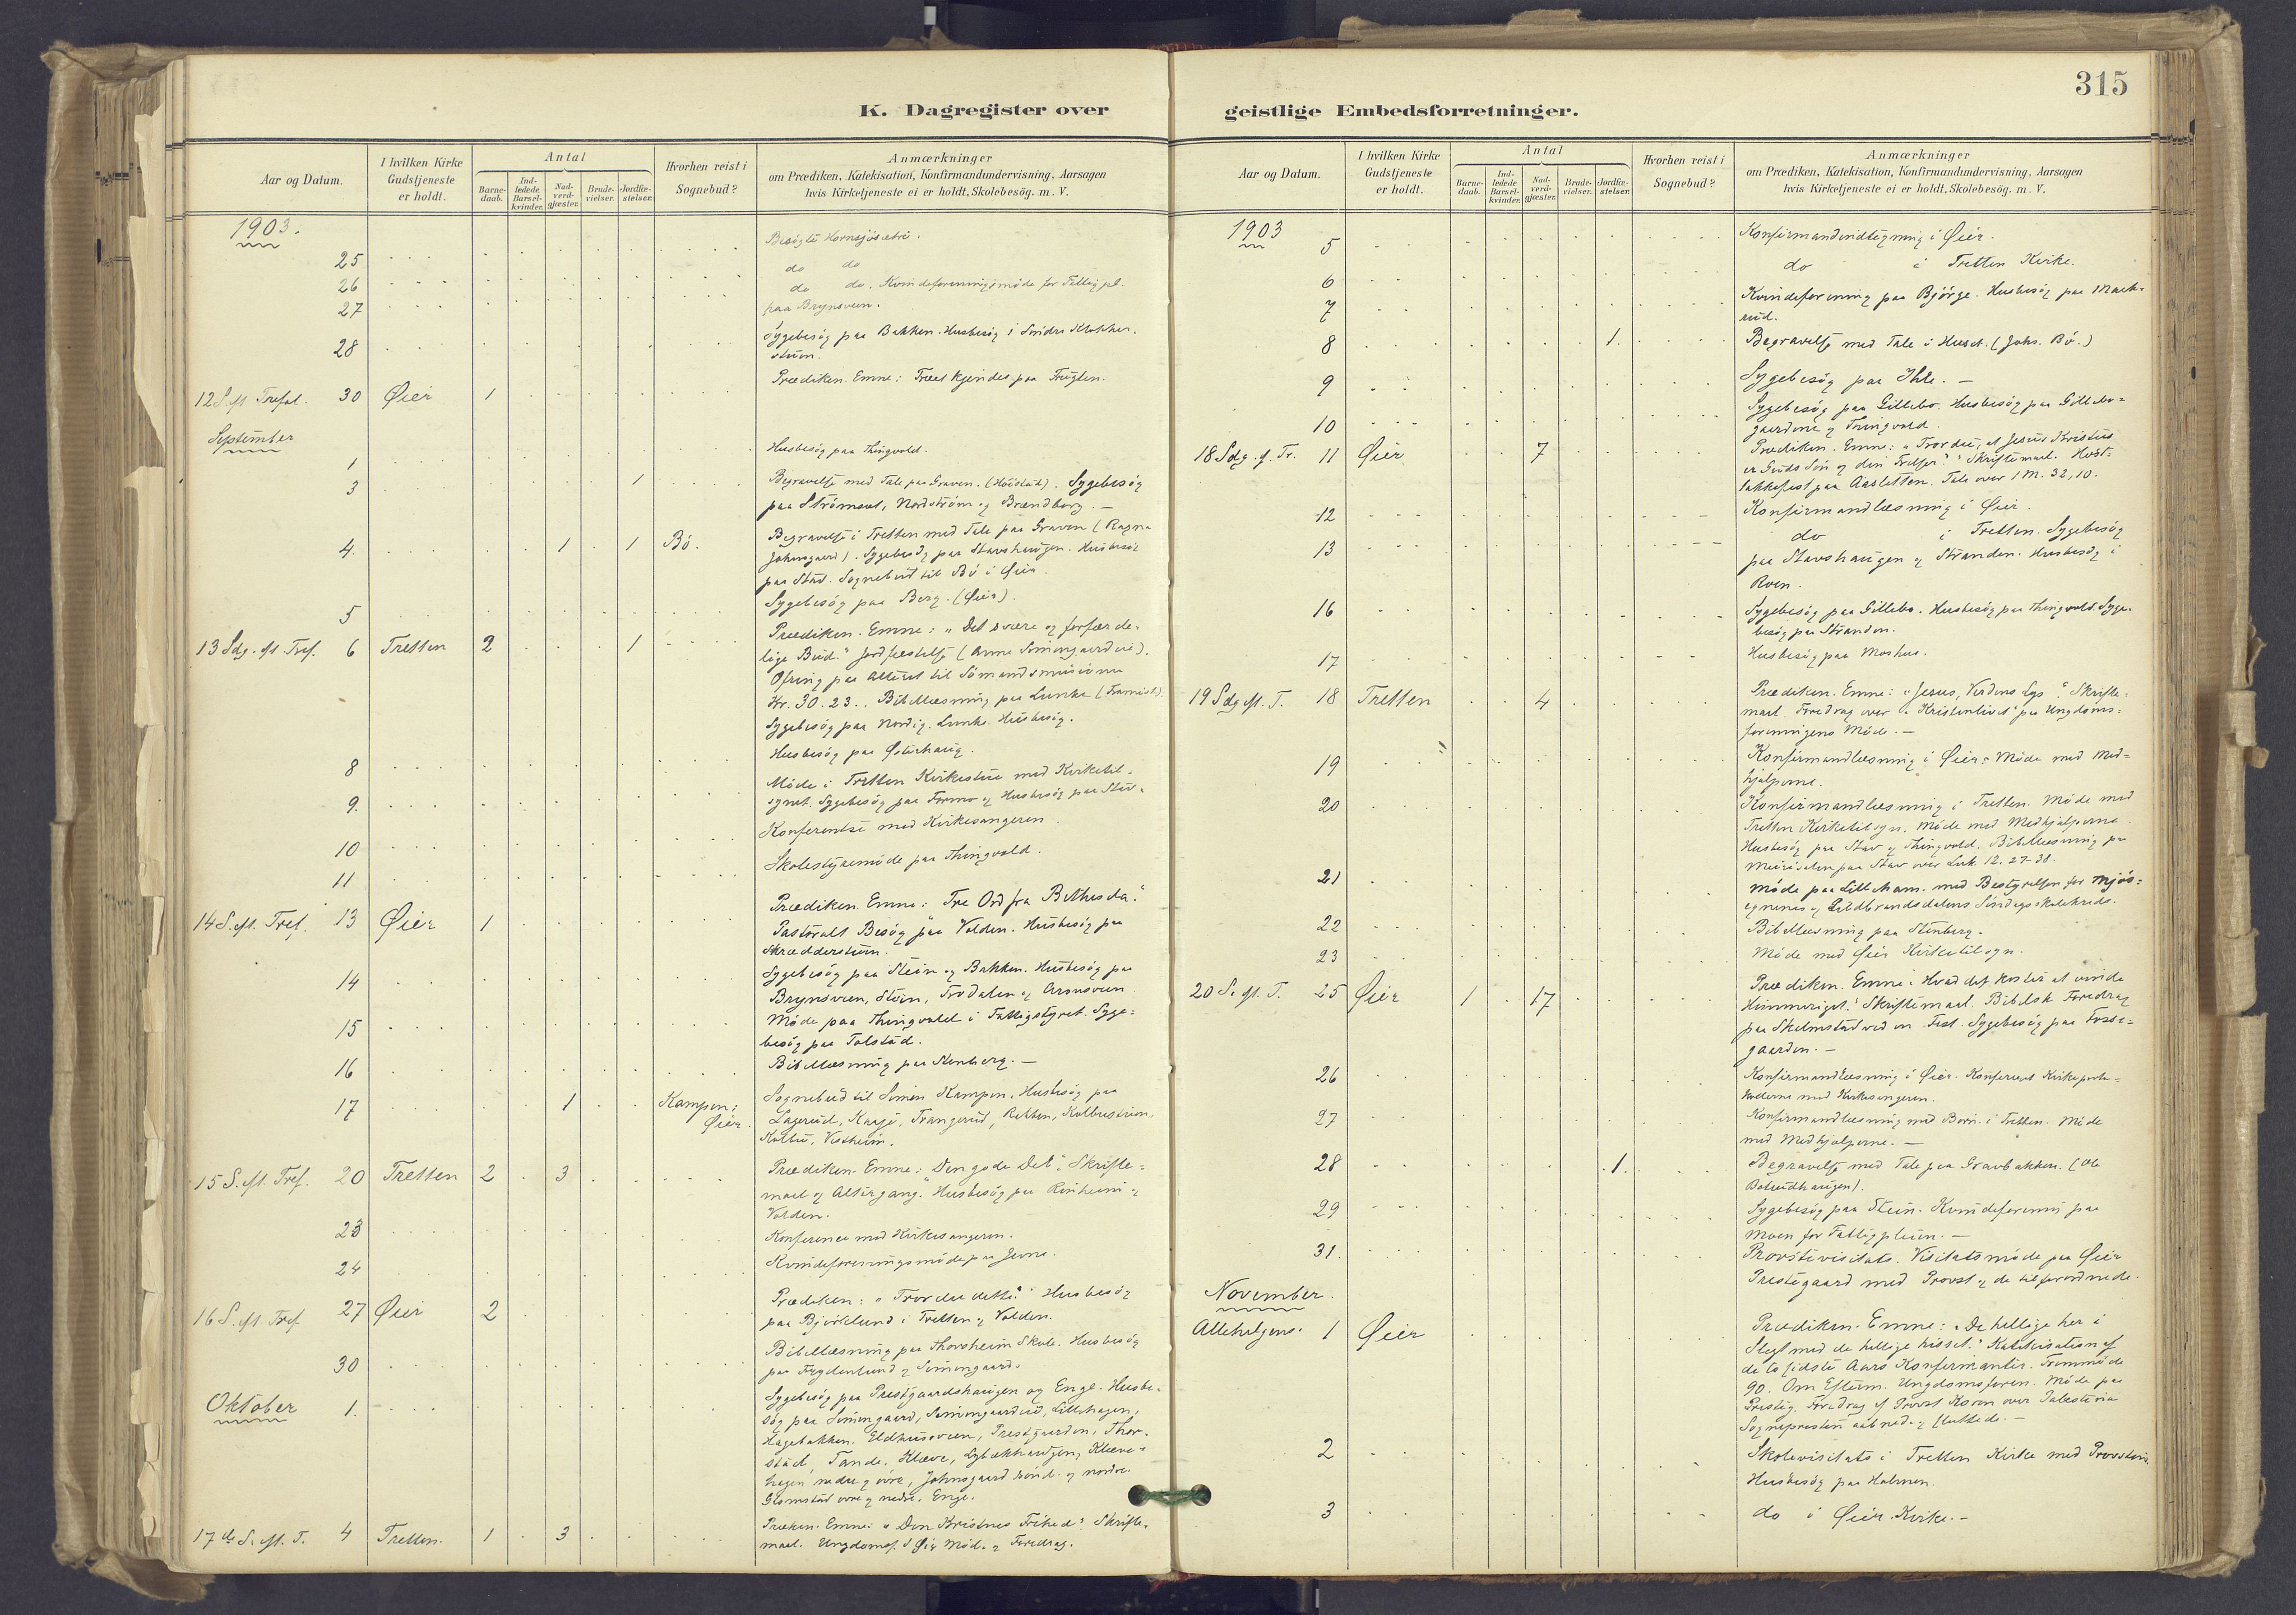 K. Dagregister over
Aar og Datum.
I hvilken Kirke Gudstjeneste er holdt.
Antal
Barnedaab.
Indledede Barselkvinder.
Nadverdgjæster.
Brudevielser.
Jordfæstelser.
Hvorhen reist i Sognebud?
Anmærkninger
om Prædiken, Katekisation, Konfirmandundervisning, Aarsagen
hvis Kirketjeneste ei er holdt, Skolebesög. m. V.
1903.
Besögte Hornsjösætri.
25 do do
26 do do. Kvindeforeningsmöde for
27 paa Brynsveen.
28 Sygebesög paa Bakken. Husbesög i Söndre Klokker-
stuen.
12 S. ft. Trefol. 30 Øier 1 Prædiken. Emne: Træet kjendes paa Frugten.
September
1 Husbesög paa Thingvold.
3 1 Begravelse med Tale paa Graven. Sygebesög
paa Strömsest, Nordström og Brændborg. —
4. 1 1 Bö. Begravelse i Tretten med Tale paa Graven (Ragna
Johnsgaard). Sygebesög paa Stavshaugen. Husbesög
paa Stav. Sognebud til Bö i Öier.
5 Sygebesög paa Berg. (Øier).
13 Sdg. ft. Tref. 6 Tretten 2 1 Prædiken. Emne: "Det svære og forfærde-
lige Bud." Jordfæstelse (Anne Simengaardeie).
Ofring paa Alteret til Sömandsmissionen
Kr. 30.23. Bibellæsning paa Lunke
Sygebesög paa Nordig. Lunke. Husbesög.
8 Husbesög paa Østerhaug.
9. Möde i Tretten Kirkestue med Kirketil-
synet. Sygebesög paa Formo og Husbesög paa Stav.
10 Konferentse med Kirkesangeren.
11 Skolestyremöde paa Thingvold.
14 S. ft. Tref. 13 Øier 1 Prædiken. Emne: Tre Ord fra Bethesda."
Pastoralt Besög paa Volden. Husbesög paa
Skrædderstuen.
14 Sygebesög paa Steen og Bakken. Husbesög paa
Brynsveen, Steen, Trodalen og Aronsveen
15 Möde paa Thingvold i Fattigstyret. Syge-
besög paa Tolstad.
16 Bibellæsning paa Stenberg. —
17 1 Kampen i Øier. Sognebud til Simen Kampen. Husbesög paa
Lagerud, Kaasje, Trangerud, Rebken, Kolbustuen,
Kolbu, Vestheim.
15 S. ft. Tref. 20 Tretten 2 3 Prædiken. Emne: Den gode Del". Skrifte-
maal og Altergang. Husbesög paa Rinheim og
Volden.
23 Konference med Kirkesangeren.
24 Kvindeforeningsmöde paa Jevne.
16 S. ft. Tref 27 Øier 2 Prædiken: "Tror du dette?" Husbesög
paa Björklund i Tretten og Volden.
30 Bibellæsning paa Thorsheim Skole. Husbesög
paa Frydenlund og Simengaard.
Oktober 1. Sygebesög paa Prestgaardshaugen og Enge. Husbe-
sög paa Simengaard, Simengaardeie, Lillehagen,
Hagebakken, Eldhusveen, Prestgaarden, Thor-
stad, Tande, Kleve, Lybækhaugen, Kleve-
hagen nedre og övre, Johnsgaard sönd. og nordre.
Glomstad övre og nedre. Enge.
17de S. ft. T. 4 Tretten. 1 3 Prædiken. Emne: "Den Kristnes Frihed". Skrifte-
maal. Ungdomsf. i Øier Möde og Foredrag.
315
geistlige Embedsforretninger.
Aar og Datum.
I hvilken Kirke Gudstjeneste er holdt.
Antal
Barnedaab.
Indledede Barselkvinder.
Nadverdgjæster.
Brudevielser.
Jordfæstelser.
Hvorhen reist i Sognebud?
Anmærkninger
om Prædiken, Katekisation, Konfirmandundervisning, Aarsagen
hvis Kirketjeneste ei er holdt, Skolebesög. m. V.
1903
5 Konfirmandindtegning i Øier.
6 do i Tretten Kirke.
7 Kvindeforening paa Björge. Husbesög paa Mæhl-
rud.
8 1. Begravelse med Tale i Huset. (Johs. Bö.)
9 Sygebesög paa Ihle. —
10 Sygebesög paa Gillebo. Husbesög paa Gillebo-
gaardene og Thingvold.
18 Sdg. f. Tr. 11 Øier 7 Prædiken. Emne: "Tror du, at Jesus Kristus
er Guds Sön og din Frelser". Skriftemaal. Höst-
takkefest paa Aasletten. Tale over 1 M. 32, 10.
12 Konfirmandlæsning i Øier.
13 do i Tretten. Sygebesög
paa Stavshaugen og Stranden. Husbesög i
Roen.
16 Sygebesög paa Gillebo. Husbesög paa Thingvold. Syge-
besög paa Stranden.
17 Husbesög paa Moshus.
19 Sdg ft. T. 18 Tretten 4 Prædiken. Emne: "Jesus, Verdens Lys". Skrifte-
maal. Foredrag over "Kristenlivet" paa Ungdoms-
foreningens Möde. —
19 Konfirmandlæsning i Øier. Möde med Med-
hjælperne.
20 Konfirmandlæsning i Tretten. Möde med
Tretten Kirketilsyn. Möde med Medhjælperne.
Husbesög paa Stav og Thingvold. Bibellæsning paa
Missionen paa Stav over Luk. 12. 27-38.
21 Möde paa Lilleham. med Bestyrelsen for Mjös-
egnenes og Guldbrandsdalens Söndagsskolekreds.
22 Bibellæsning paa Stenberg.
23 Möde med Øier Kirketilsyn.
20 S. ft. T. 25 Øier 1 17 Prædiken. Emne: Hvad det koster at vinde
Himmeriget." Skriftemaal. Bibelsk Foredrag
paa Skelmstad ved en Fest. Sygebesög paa Fosse-
gaarden. —
26 Konfirmandlæsning i Øier. Konfereret Kirkeproto-
kollerne med Kirkesangeren.
27 Konfirmandlæsning med Börn i Tretten. Möde
med Medhjælperne. —
28 1. Begravelse med Tale paa Gravbakken. (Ole
Boteudhaugen).
29 Sygebesög paa Steen. Kvindeforening paa
Moen for Fattigpleien. —
31. Provstivisitats. Visitatsmöde paa Øier
Prestegaard med Provst og de tilforordnede.
November.
Allehelgens. 1 Øier Prædiken. Emne: "De hellige her i
Slegt med de hellige hisset." Katekisation af
de to sidste Aars Konfirmanter. Fremmöde
90. Om Efterm. Ungdomsforen. Möde paa
Prestg. Foredrag af Provst Koren over Palestina
Sognepresten aabned og sluttede. —
2 Skolevisitats i Tretten Kirke med Provsten.
Husbesög paa Holmen.
3 do i Øier Kirke. —